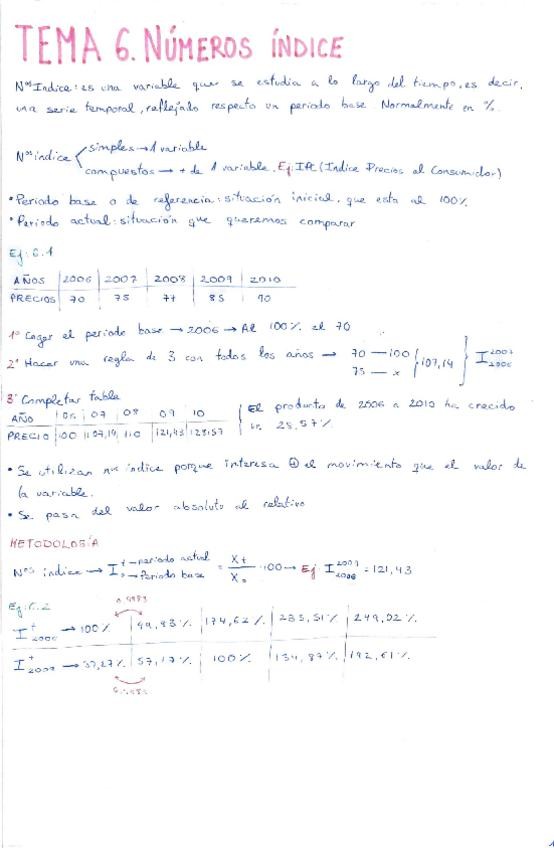 TEMA 6. NÚMEROS ÍNDICE
Nos Indice: es una variable que se estudia a lo largo del tiempo, es decir,
una serie temporal, reflejado respecto un periodo base. Normalmente en %.
Nos indice simples → 1 variable
compuestos → + de 1 variable. Ej: IPC (Indice Precios al Consumidor)
• Periodo base o de referencia: situación inicial, que esta al 100%
• Periodo actual: situación que queremos comparar
Ej: 6.1
AÑOS 2006 2007 2008 2009 2010
PRECIOS 70 75 77 85 90
1º Coger el periodo base → 2006 → Al 100% el 70
2º Hacer una regla de 3 con todos los años → 70 — 100
75 — x } 107,14 } I 2007 2006
3º Completar tabla
AÑO 06 07 08 09 10
PRECIO 100 107,14 110 121,43 128,57
El producto de 2006 a 2010 ha crecido
un 28,57%
• Se utilizan nos indice porque interesa ⊕ el movimiento que el valor de
la variable.
• Se pasa del valor absoluto al relativo
METODOLOGÍA
Nos indice → I t → periodo actual 0 → Periodo base = Xt / X0 · 100 → Ej I 2009 2006 = 121,43
Ej: 6.2
I t 2006 → 100% 99,83% 174,62% 235,51% 249,02%
I t → 57,27% 57,17% 100% 134,87% 142,61%